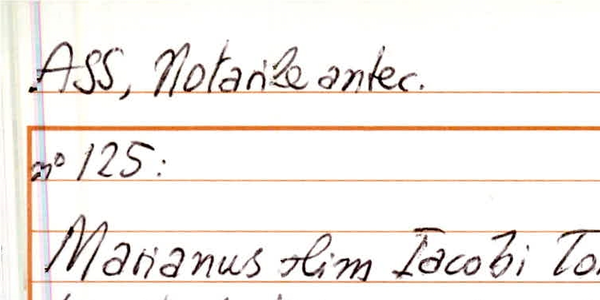 ASS, Notarile antec.
nº 125:
Marianus olim Iacobi To